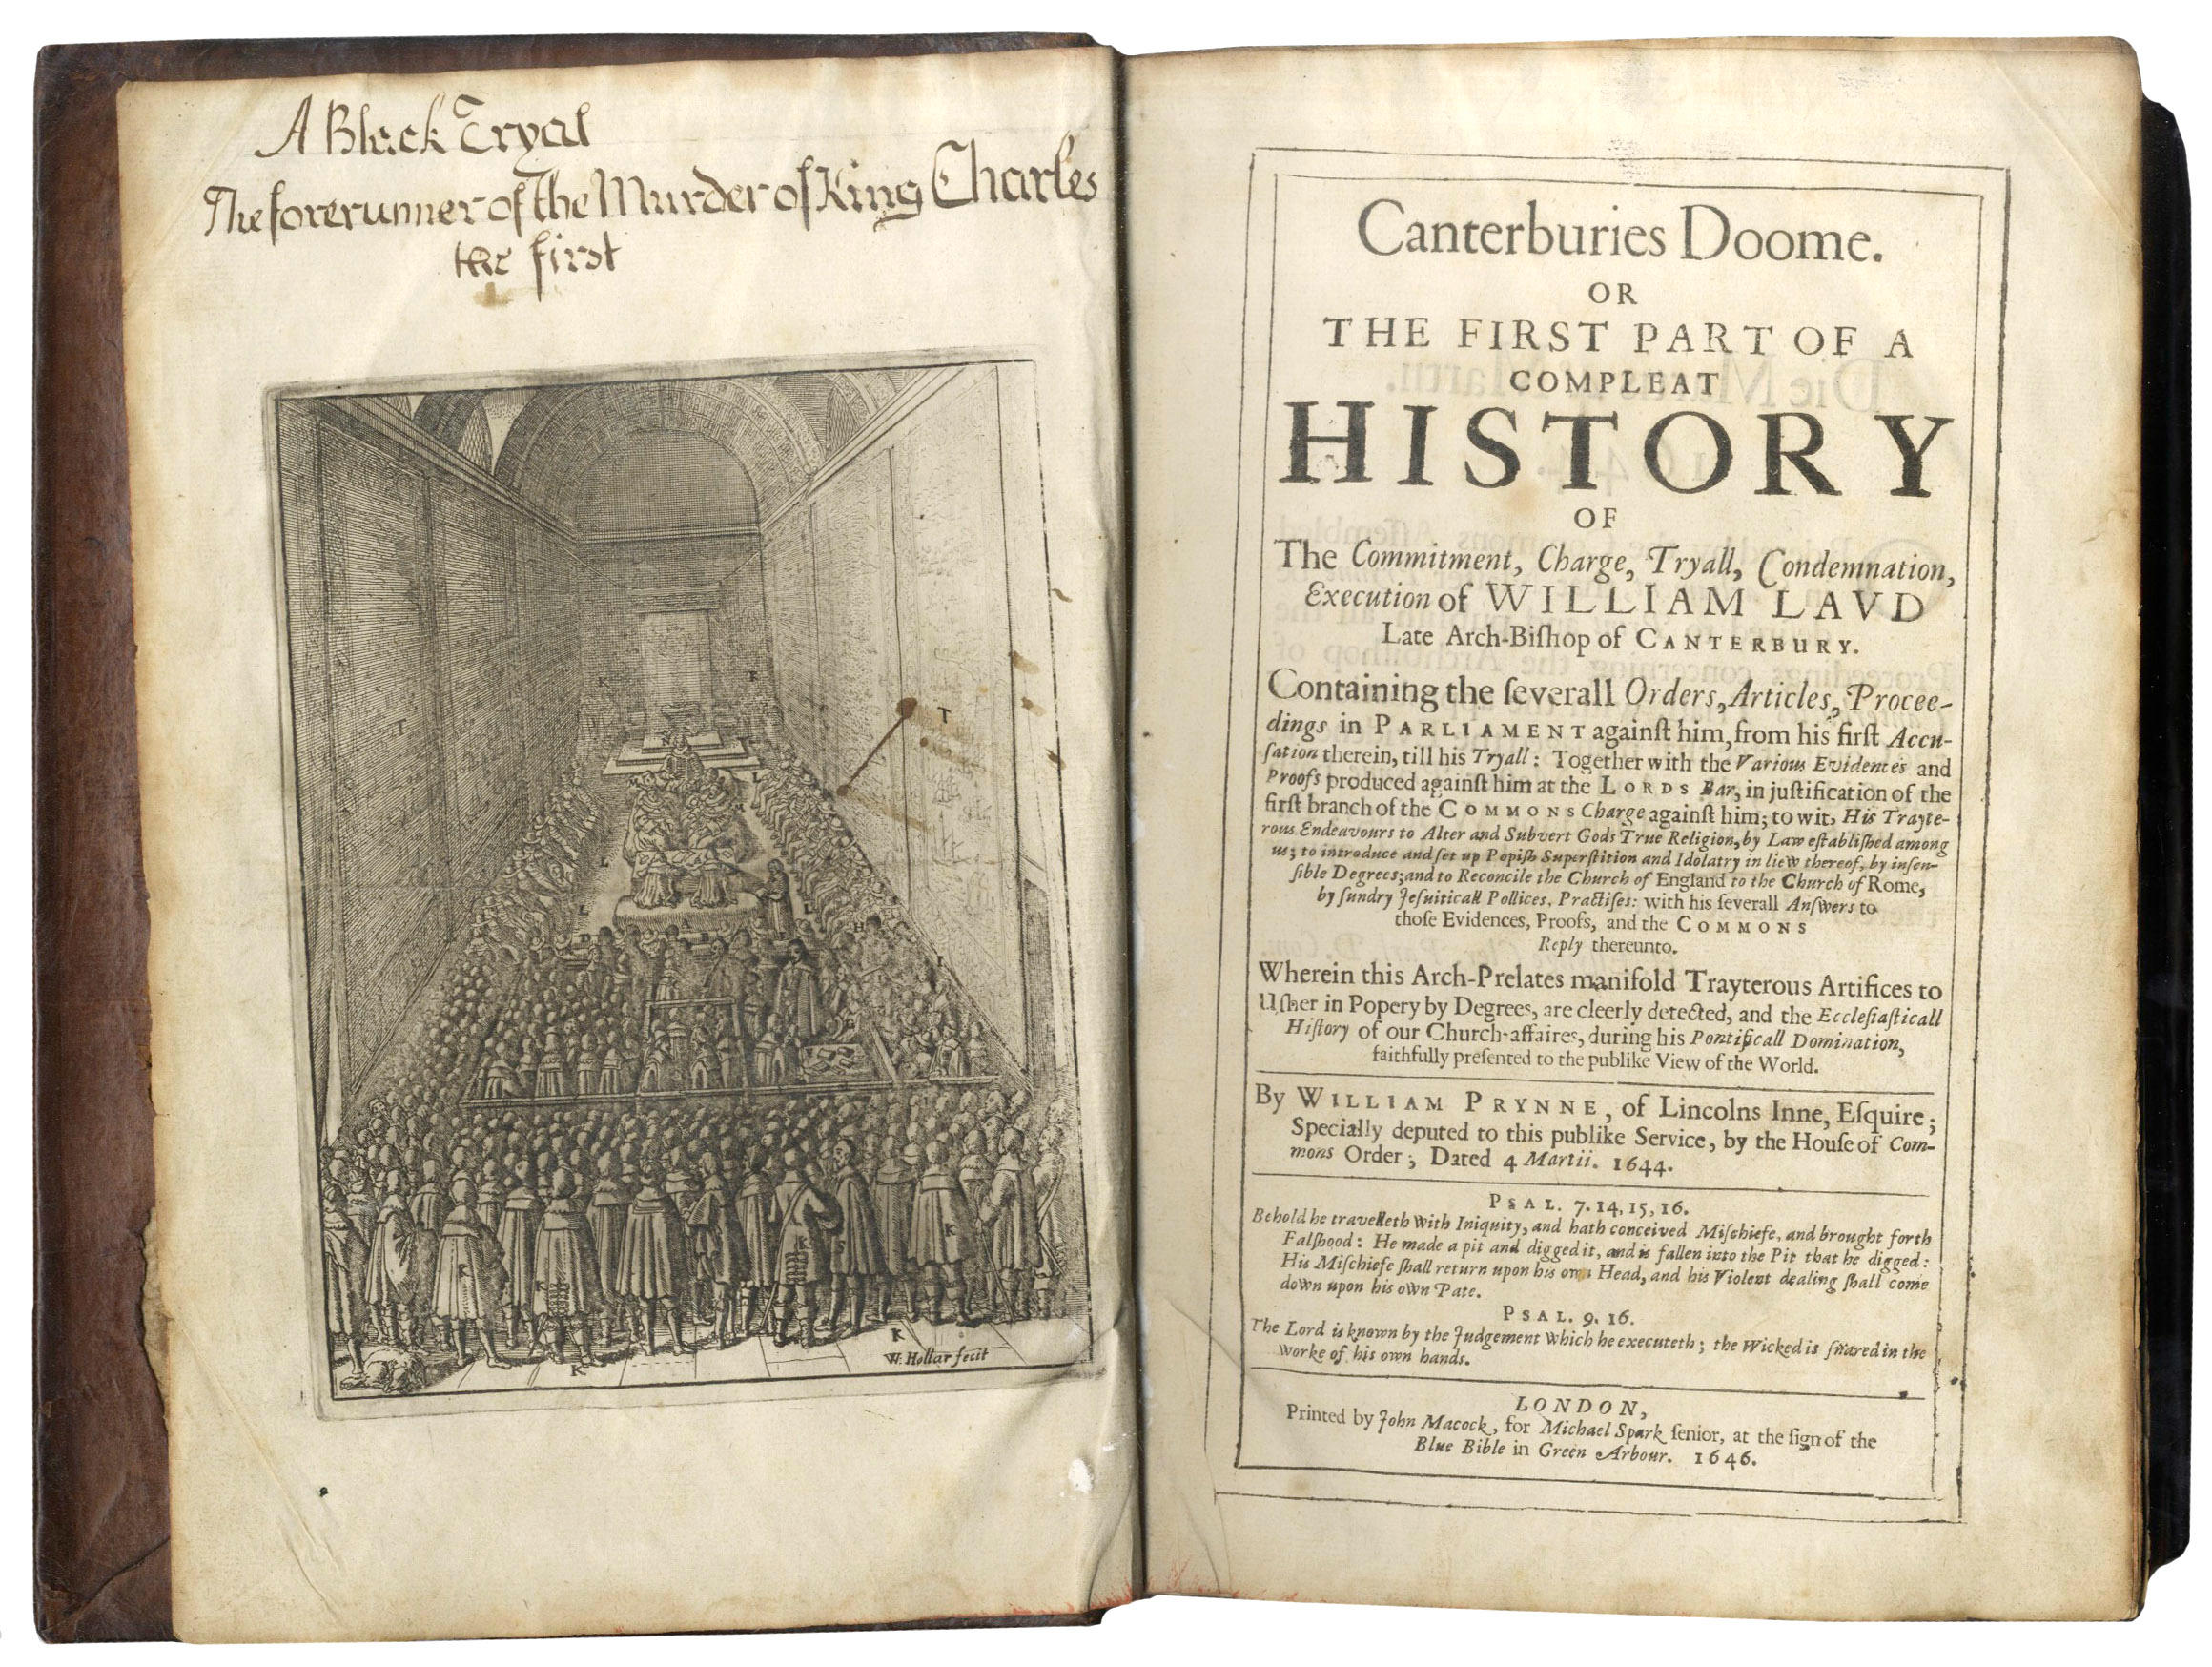 A Black Tryal
The forerunner of the Murder of King Charles
the first
K
K
T
T
L
L
L
L
H
I
K
K
S
K
K
K
K
W. Hollar fecit
Canterburies Doome.
OR
THE FIRST PART OF A
COMPLEAT
HISTORY
OF
The Commitment, Charge, Tryall, Condemnation,
Execution of WILLIAM LAVD
Late Arch-Biſhop of CANTERBURY.
Containing the ſeverall Orders, Articles, Procee-
dings in PARLIAMENT againſt him, from his firſt Accu-
ſation therein, till his Tryall: Together with the Various Evidences and
Proofs produced againſt him at the LORDS Bar, in juſtification of the
firſt branch of the COMMONS Charge againſt him; to wit, His Trayte-
rous Endeavours to Alter and Subvert Gods True Religion, by Law eſtabliſhed among
us; to introduce and ſet up Popiſh Superſtition and Idolatry in liew thereof, by inſen-
ſible Degrees; and to Reconcile the Church of England to the Church of Rome,
by ſundry Jeſuiticall Pollices, Practiſes: with his ſeverall Anſwers to
thoſe Evidences, Proofs, and the COMMONS
Reply thereunto.
Wherein this Arch-Prelates manifold Trayterous Artifices to
Uſher in Popery by Degrees, are cleerly detected, and the Eccleſiaſticall
Hiſtory of our Church-affaires, during his Pontificall Domination,
faithfully preſented to the publike View of the World.
By WILLIAM PRYNNE, of Lincolns Inne, Eſquire;
Specially deputed to this publike Service, by the Houſe of Com-
mons Order; Dated 4 Martii. 1644.
PSAL. 7. 14, 15, 16.
Behold he travelleth with Iniquity, and hath conceived Miſchiefe, and brought forth
Falſhood: He made a pit and digged it, and is fallen into the Pit that he digged:
His Miſchiefe ſhall return upon his own Head, and his Violent dealing ſhall come
down upon his own Pate.
PSAL. 9. 16.
The Lord is known by the Judgement which he executeth; the Wicked is ſnared in the
worke of his own hands.
LONDON,
Printed by John Macock, for Michael Spark ſenior, at the ſign of the
Blue Bible in Green Arbour. 1646.